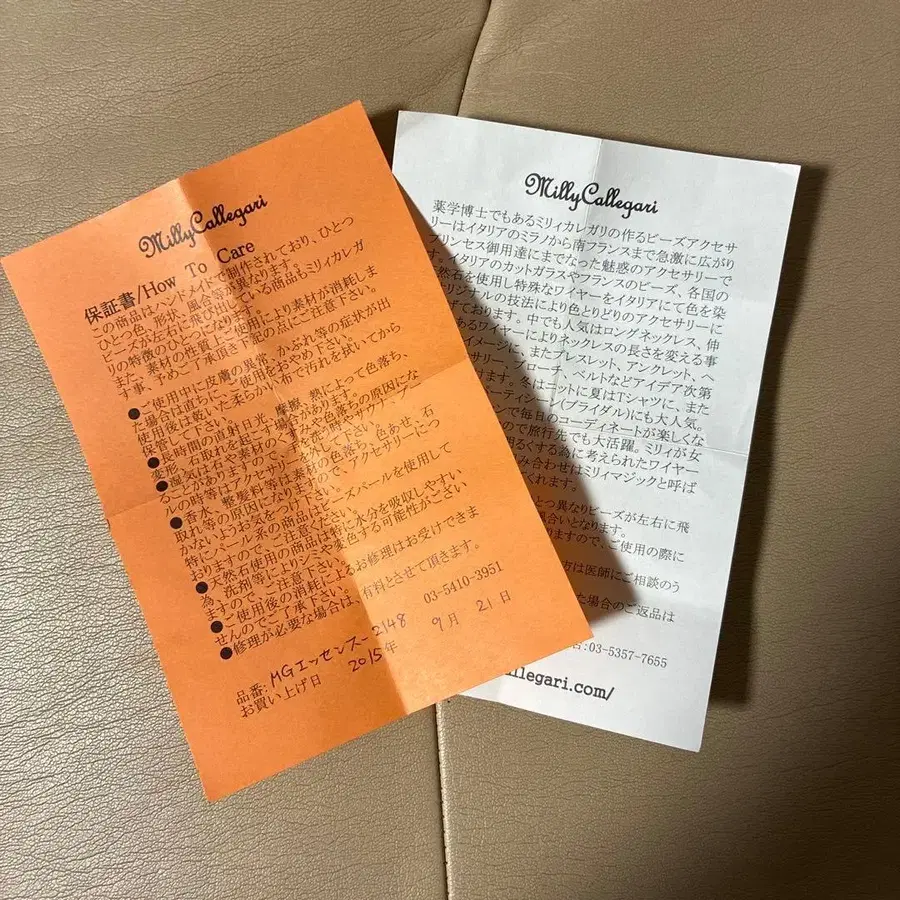 MillyCallegari
保証書/How To Care
この商品はハンドメイドで制作されており、ひとつ
ひとつ色、形状、風合等が異なります。
ビーズが左右に飛び出している商品もミリィカレガ
リの特徴のひとつです。
また、素材の性質上、使用により素材が消耗しま
す事、予めご了承頂き下記の点にご注意下さい。
●ご使用中に皮膚の異常、かぶれ等の症状が出
た場合は直ちにご使用をおやめ下さい。
使用後は乾いた柔らかい布で汚れを拭いてから
保管して下さい。
●長時間の直射日光、摩擦、熱によって色落ち、
変形、石取れを起こす場合があります。
●湿気は石や素材の
ることがありますので、
ルの時等は
●香水、整髪料等は素材の色落ち、色あせ、石
取れ等の原因になりますので、アクセサリーにつ
かないようお気をつけ下さい。
特にパール系の商品は
おりますので、ご注意ください。
●天然石使用の商品は特に水分を吸収しやすい
為、洗剤等によりシミや変色する可能性がござい
ますので、ご注意下さい。
●ご使用後の消耗による修理はお受けできま
せんのでご了承下さい。
●修理が必要な場合は、有料とさせて頂きます。
03-5410-3951
品番: MGエッセンス-2148
お買い上げ日 2015年 9月 21日
MillyCallegari
薬学博士でもあるミリィカレガリの作るビーズアクセサ
リーはイタリアのミラノから南フランスまで急激に広がり
プリンセス御用達にまでなった魅惑のアクセサリーで
す。イタリアのカットガラスやフランスのビーズ、各国の
天然石を使用し特殊なワイヤーをイタリアにて色を染
オリジナルの技法により色とりどりのアクセサリーに
げております。中でも人気はロングネックレス、伸
あるワイヤーによりネックレスの長さを変える事
イメージに、またブレスレット、アンクレット、ヘ
サリー、ブローチ、ベルトなどアイデア次第
けます。冬はニットに夏はTシャツに、また
パーティシーン(ブライダル)にも大人気。
ンで毎日のコーディネートが楽しくな
ので旅行先でも大活躍。ミリィが女
明るくする為に考えられたワイヤー
み合わせはミリィマジックと呼ば
くれます。
とつ異なりビーズが左右に飛
合いとなります。
りますので、ご使用の際に
方は医師にご相談のう
た場合のご返品は
:03-5357-7655
llegari.com/